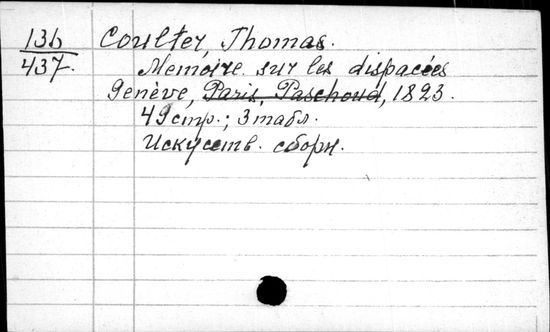 136 Coulter, Thomas.
437. Memoire sur les dispacées
Genève, Paris, Paschoud, 1823.
49 стр.; 3 табл.
Искусств. сборн.